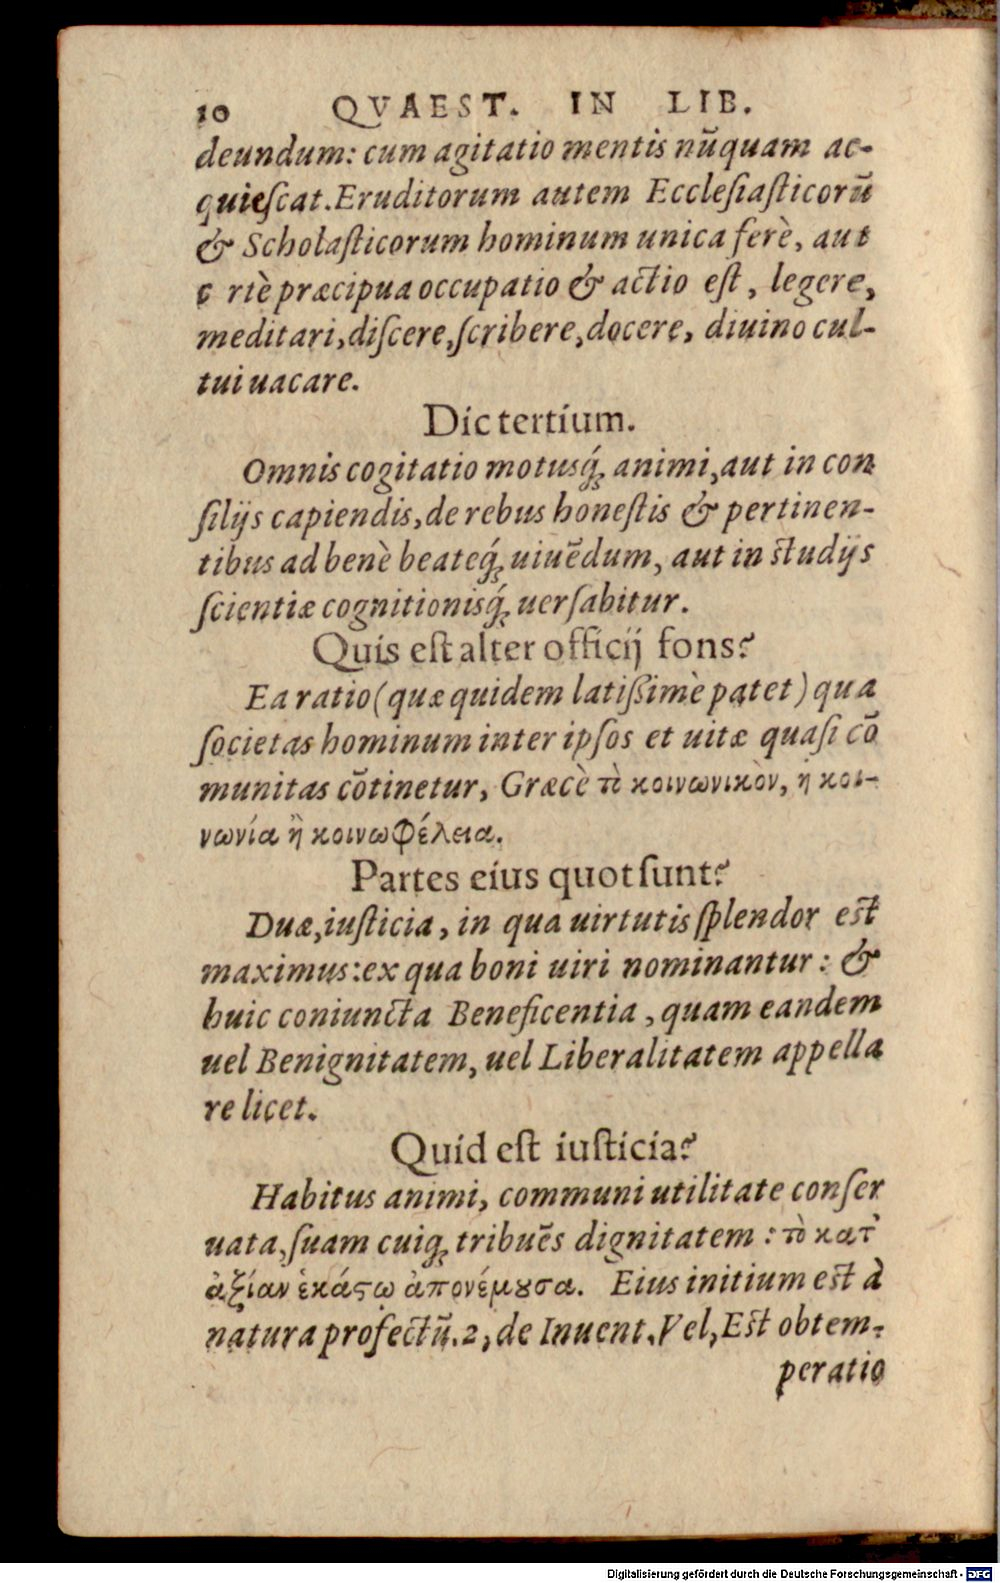 10 QVAEST. IN LIB.
deundum: cum agitatio mentis nũquam ac-
quieſcat. Eruditorum autem Eccleſiaſticorũ
& Scholaſticorum hominum unica ferè, aut
c rtè præcipua occupatio & actio eſt, legere,
meditari, diſcere, ſcribere, docere, diuino cul-
tui uacare.
Dic tertium.
Omnis cogitatio motusq́; animi, aut in con
ſilijs capiendis, de rebus honeſtis & pertinen-
tibus ad benè beateq́; uiuẽdum, aut in ſtudijs
ſcientiæ cognitionisq́; uerſabitur.
Quis eſt alter officij fons?
Ea ratio (quæ quidem latißimè patet) qua
ſocietas hominum inter ipſos et uitæ quaſi cõ
munitas cõtinetur, Græcè τὸ κοινωνικὸν, ἡ κοι-
νωνία ἢ κοινωφέλεια.
Partes eius quot ſunt?
Duæ, iuſticia, in qua uirtutis ſplendor eſt
maximus: ex qua boni uiri nominantur: &
huic coniuncta Beneficentia, quam eandem
uel Benignitatem, uel Liberalitatem appella
re licet.
Quid eſt iuſticia?
Habitus animi, communi utilitate conſer
uata, ſuam cuiq; tribuẽs dignitatem: τὸ κατ'
ἀξίαν ἑκάϛῳ ἀπονέμȣσα. Eius initium eſt à
natura profectũ. 2, de Inuent. Vel, Eſt obtem-
peratio
Digitalisierung gefördert durch die Deutsche Forschungsgemeinschaft - DFG